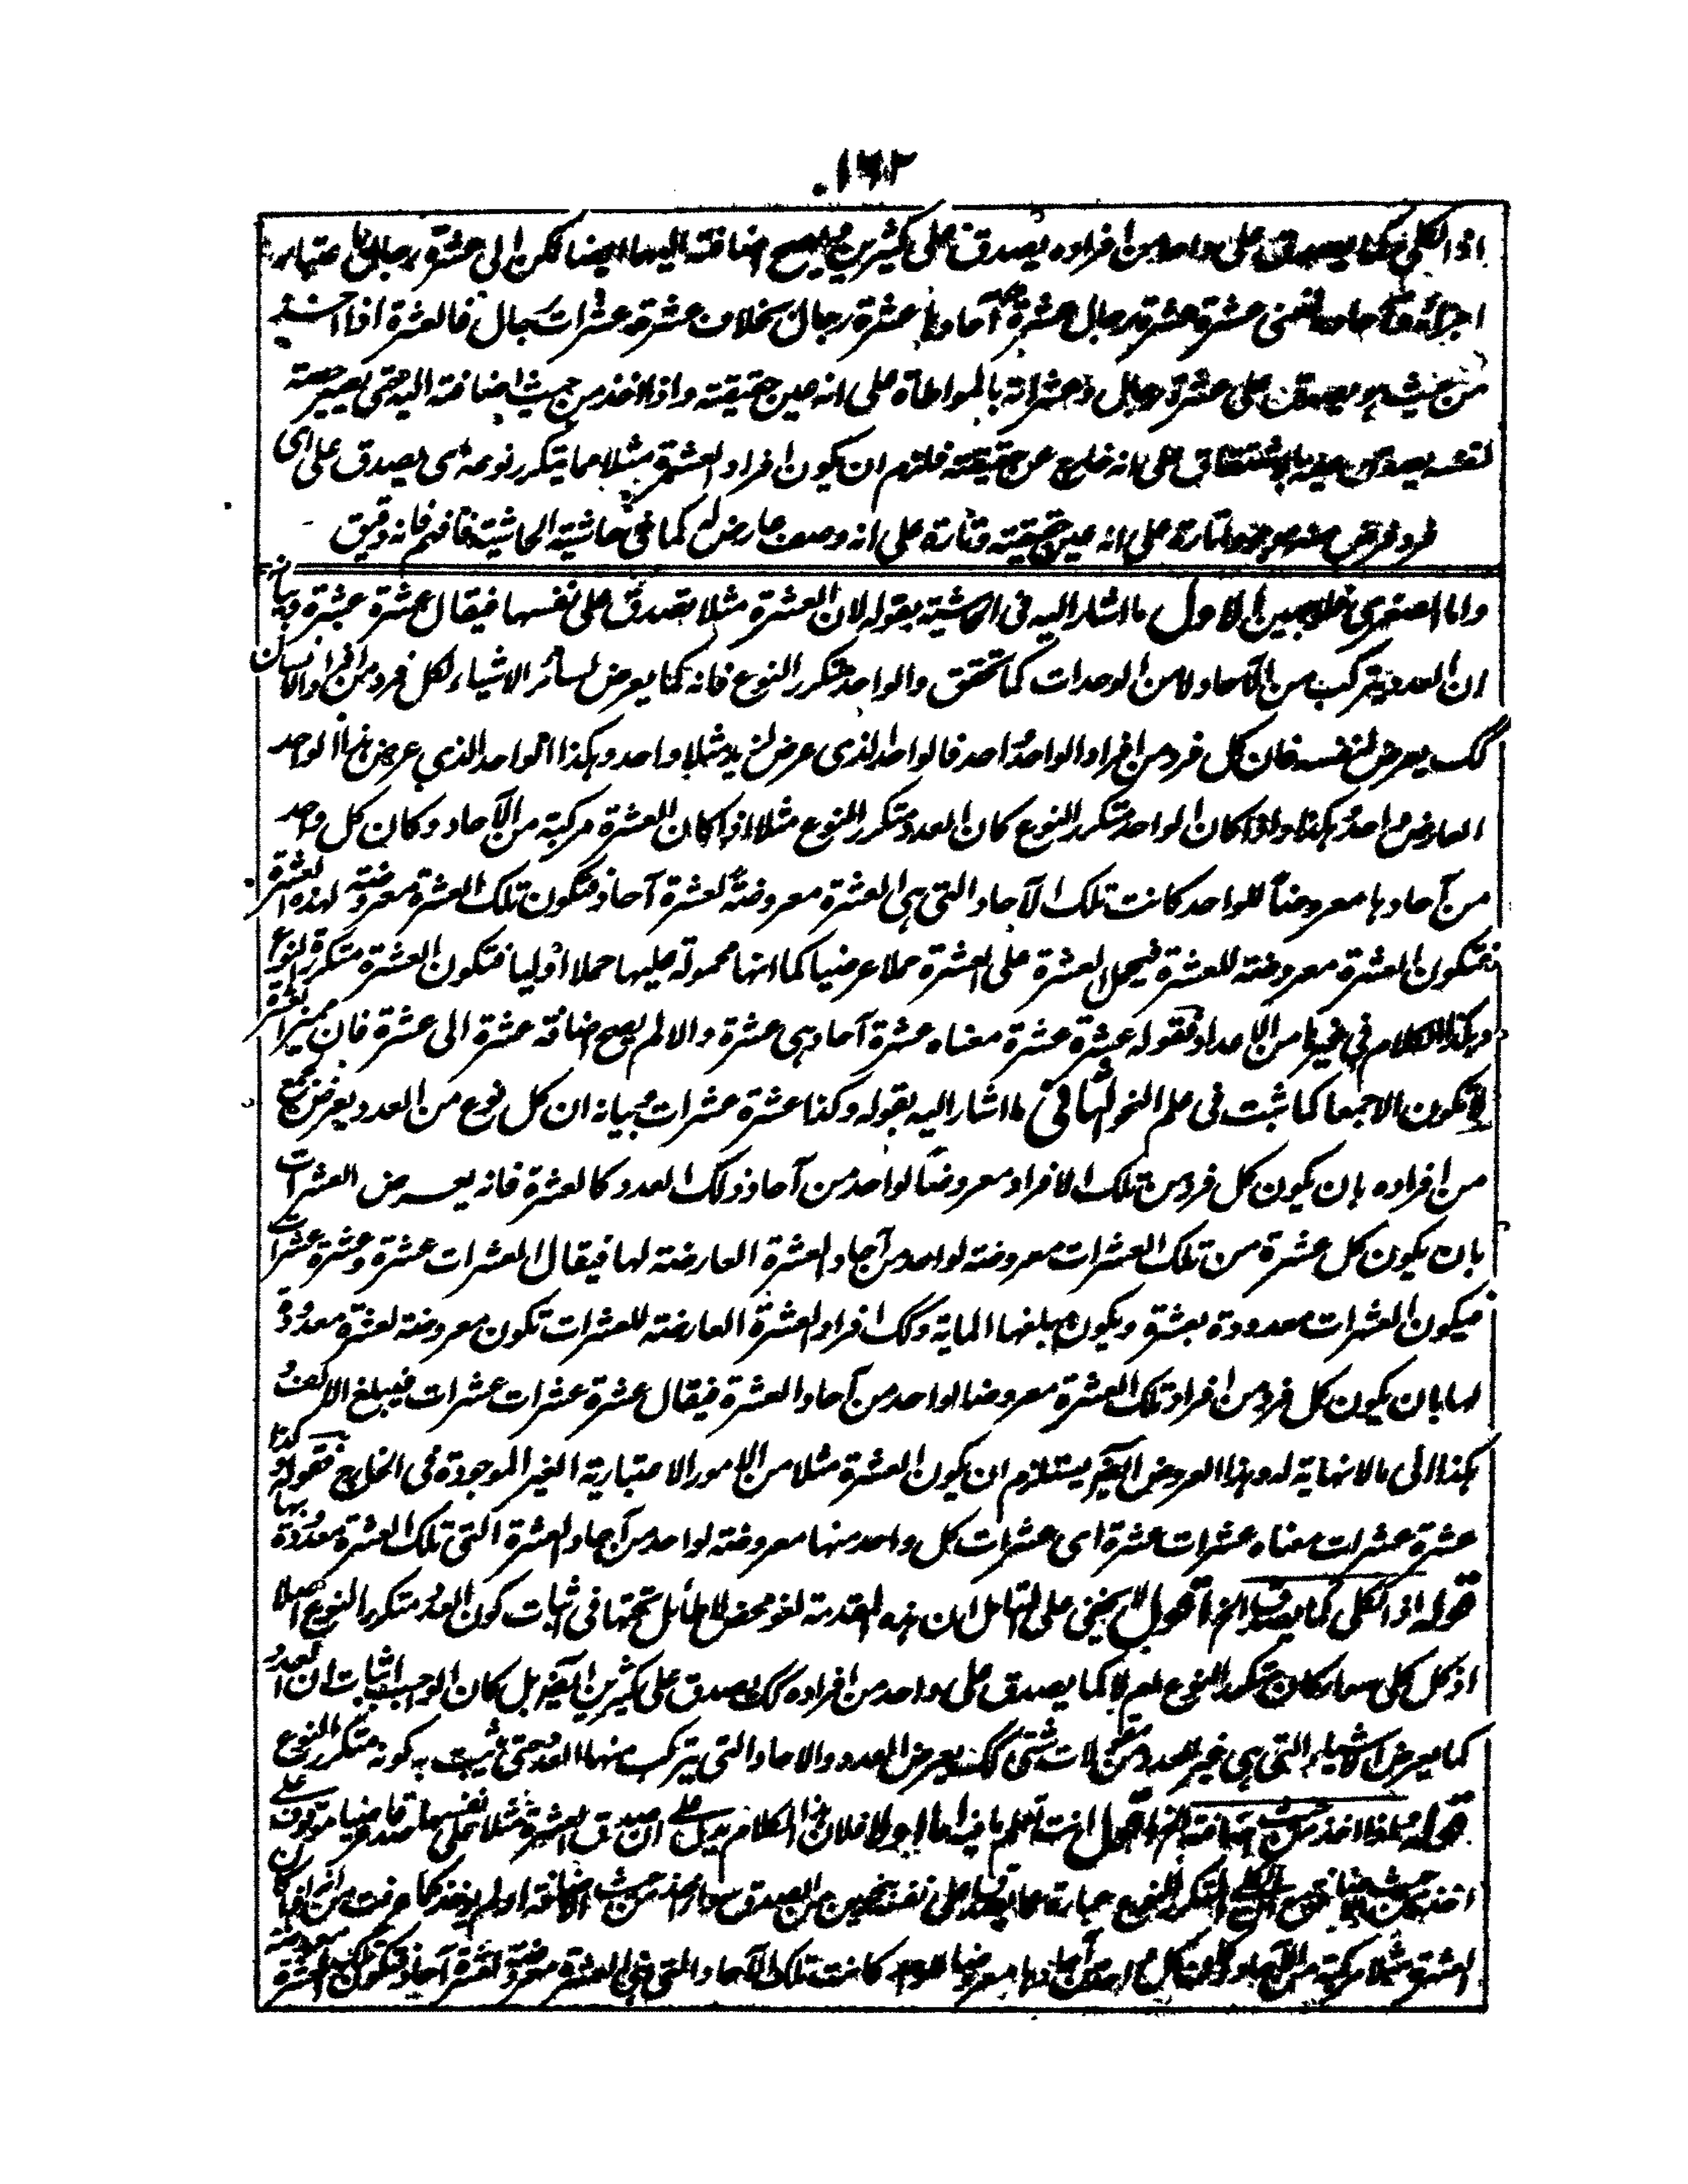 ١٦٢
اذ الكلي كما يصدق على واحد من افراده يصدق على كثيرين فيصح اضافته اليها ايضا لكن الى عشرة رجال باعتبار
اجزائه وآحاده فمعنى عشرة عشرة رجال عشرة آحادها عشرة رجال بخلاف عشرة عشرات رجال فالعشرة اذا اخذت
من حيث هو يصدق على عشرة رجال وعشراته بالمواطاة على انه عين حقيقته واذا اخذ من حيث اضافته اليه حتى يصير حصته
لنفسه يصدق عليه بالاشتقاق على انه خارج عن حقيقته فلزم ان يكون افراد العشرة مثلا مما يتكرر نوعه اى يصدق على اى
فرد فرض منه موجودا تارة على انه عين حقيقته وتارة على انه وصف عارض له كما فى حاشية الحاشية فافهم فانه دقيق
واما الصغرى فلوجهين الاول ما اشار اليه فى الحاشية بقوله لان العشرة مثلا تصدق على نفسها فيقال عشرة عشرة وبيانه
ان العدد يتركب من الآحاد لا من الوحدات كما تحقق والواحد متكرر النوع فانه كما يعرض لسائر الاشياء لكل فرد من افراد الانسان
كك يعرض لنفسه فان كل فرد من افراد الواحد واحد فالواحد الذى عرض لزيد مثلا واحد وهكذا الواحد الذي عرض لهذا الواحد
العارض واحد وهكذا واذا كان الواحد متكرر النوع كان العدد متكرر النوع مثلا اذا كان العشرة مركبة من الآحاد وكان كل واحد
من آحادها معروضاً للواحد كانت تلك الآحاد التى هى العشرة معروضة لعشرة آحاد فتكون تلك العشرة معروضة لهذه العشرة
فتكون العشرة معروضة للعشرة فيحمل العشرة على العشرة حملا عرضيا كما انها محمولة عليها حملا اوليا فتكون العشرة متكررة النوع
وهكذا الكلام في غيرها من الاعداد فقوله عشرة عشرة معناه عشرة آحاد هى عشرة والا لم يصح اضافة عشرة الى عشرة فان مميز العشرة
لا يكون الا جمعا كما ثبت فى علم النحو الثانى ما اشار اليه بقوله وكذا عشرة عشرات وبيانه ان كل نوع من العدد يعرض لجميع
من افراده بان يكون كل فرد من تلك الافراد معروضاً لواحد من آحاد ذلك العدد كالعشرة فانه يعرض العشرات
بان يكون كل عشرة من تلك العشرات معروضة لواحد من آحاد العشرة العارضة لها فيقال العشرات عشرة وعشرة عشرات
فيكون العشرات معدودة بعشرة ويكون مبلغها المائة وكك افراد العشرة العارضة للعشرات تكون معروضة لعشرة معدودة
لها بان يكون كل فرد من افراد تلك العشرة معروضا لواحد من آحاد العشرة فيقال عشرة عشرات عشرات فيبلغ الالف
هكذا الى مالا نهاية له وهذا العروض ايضا يستلزم ان يكون العشرة مثلا من الامور الاعتبارية الغير الموجودة فى الخارج فقوله وكذا
عشرة عشرات معناه عشرات عشرة اى عشرات كل واحد منها معروضة لواحد من آحاد العشرة التى تلك العشرة معدودة بها
قوله اذ الكلى كما يصدق الخ اقول لا يخفى على المتأمل ان هذه المقدمة لغو محض لا طائل تحتها فى اثبات كون العدد متكرر النوع اصلا
اذ كل كلى سواء كان متكرر النوع ام لا كما يصدق على واحد من افراده كك يصدق على كثيرين ايضا بل كان الواجب اثبات ان العدد
كما يعرض الاشياء التى هى غير العدد من مقولات شتى كك يعرض العدد والاحاد التى يتركب منها العدد حتى يثبت به كونه متكرر النوع
قوله واذا اخذ من حيث اضافته الخ اقول انت تعلم ما فيه اما اولا فلان هذا الكلام يدل على ان صدق العشرة مثلا على نفسها صدقا عرضيا موقوف على
العشرة مثلا مركبة من الآحاد وكان كل واحد من آحادها معروضا للواحد كانت تلك الآحاد التى هى العشرة معروضة لعشرة آحاد فتكون تلك العشرة معروضة